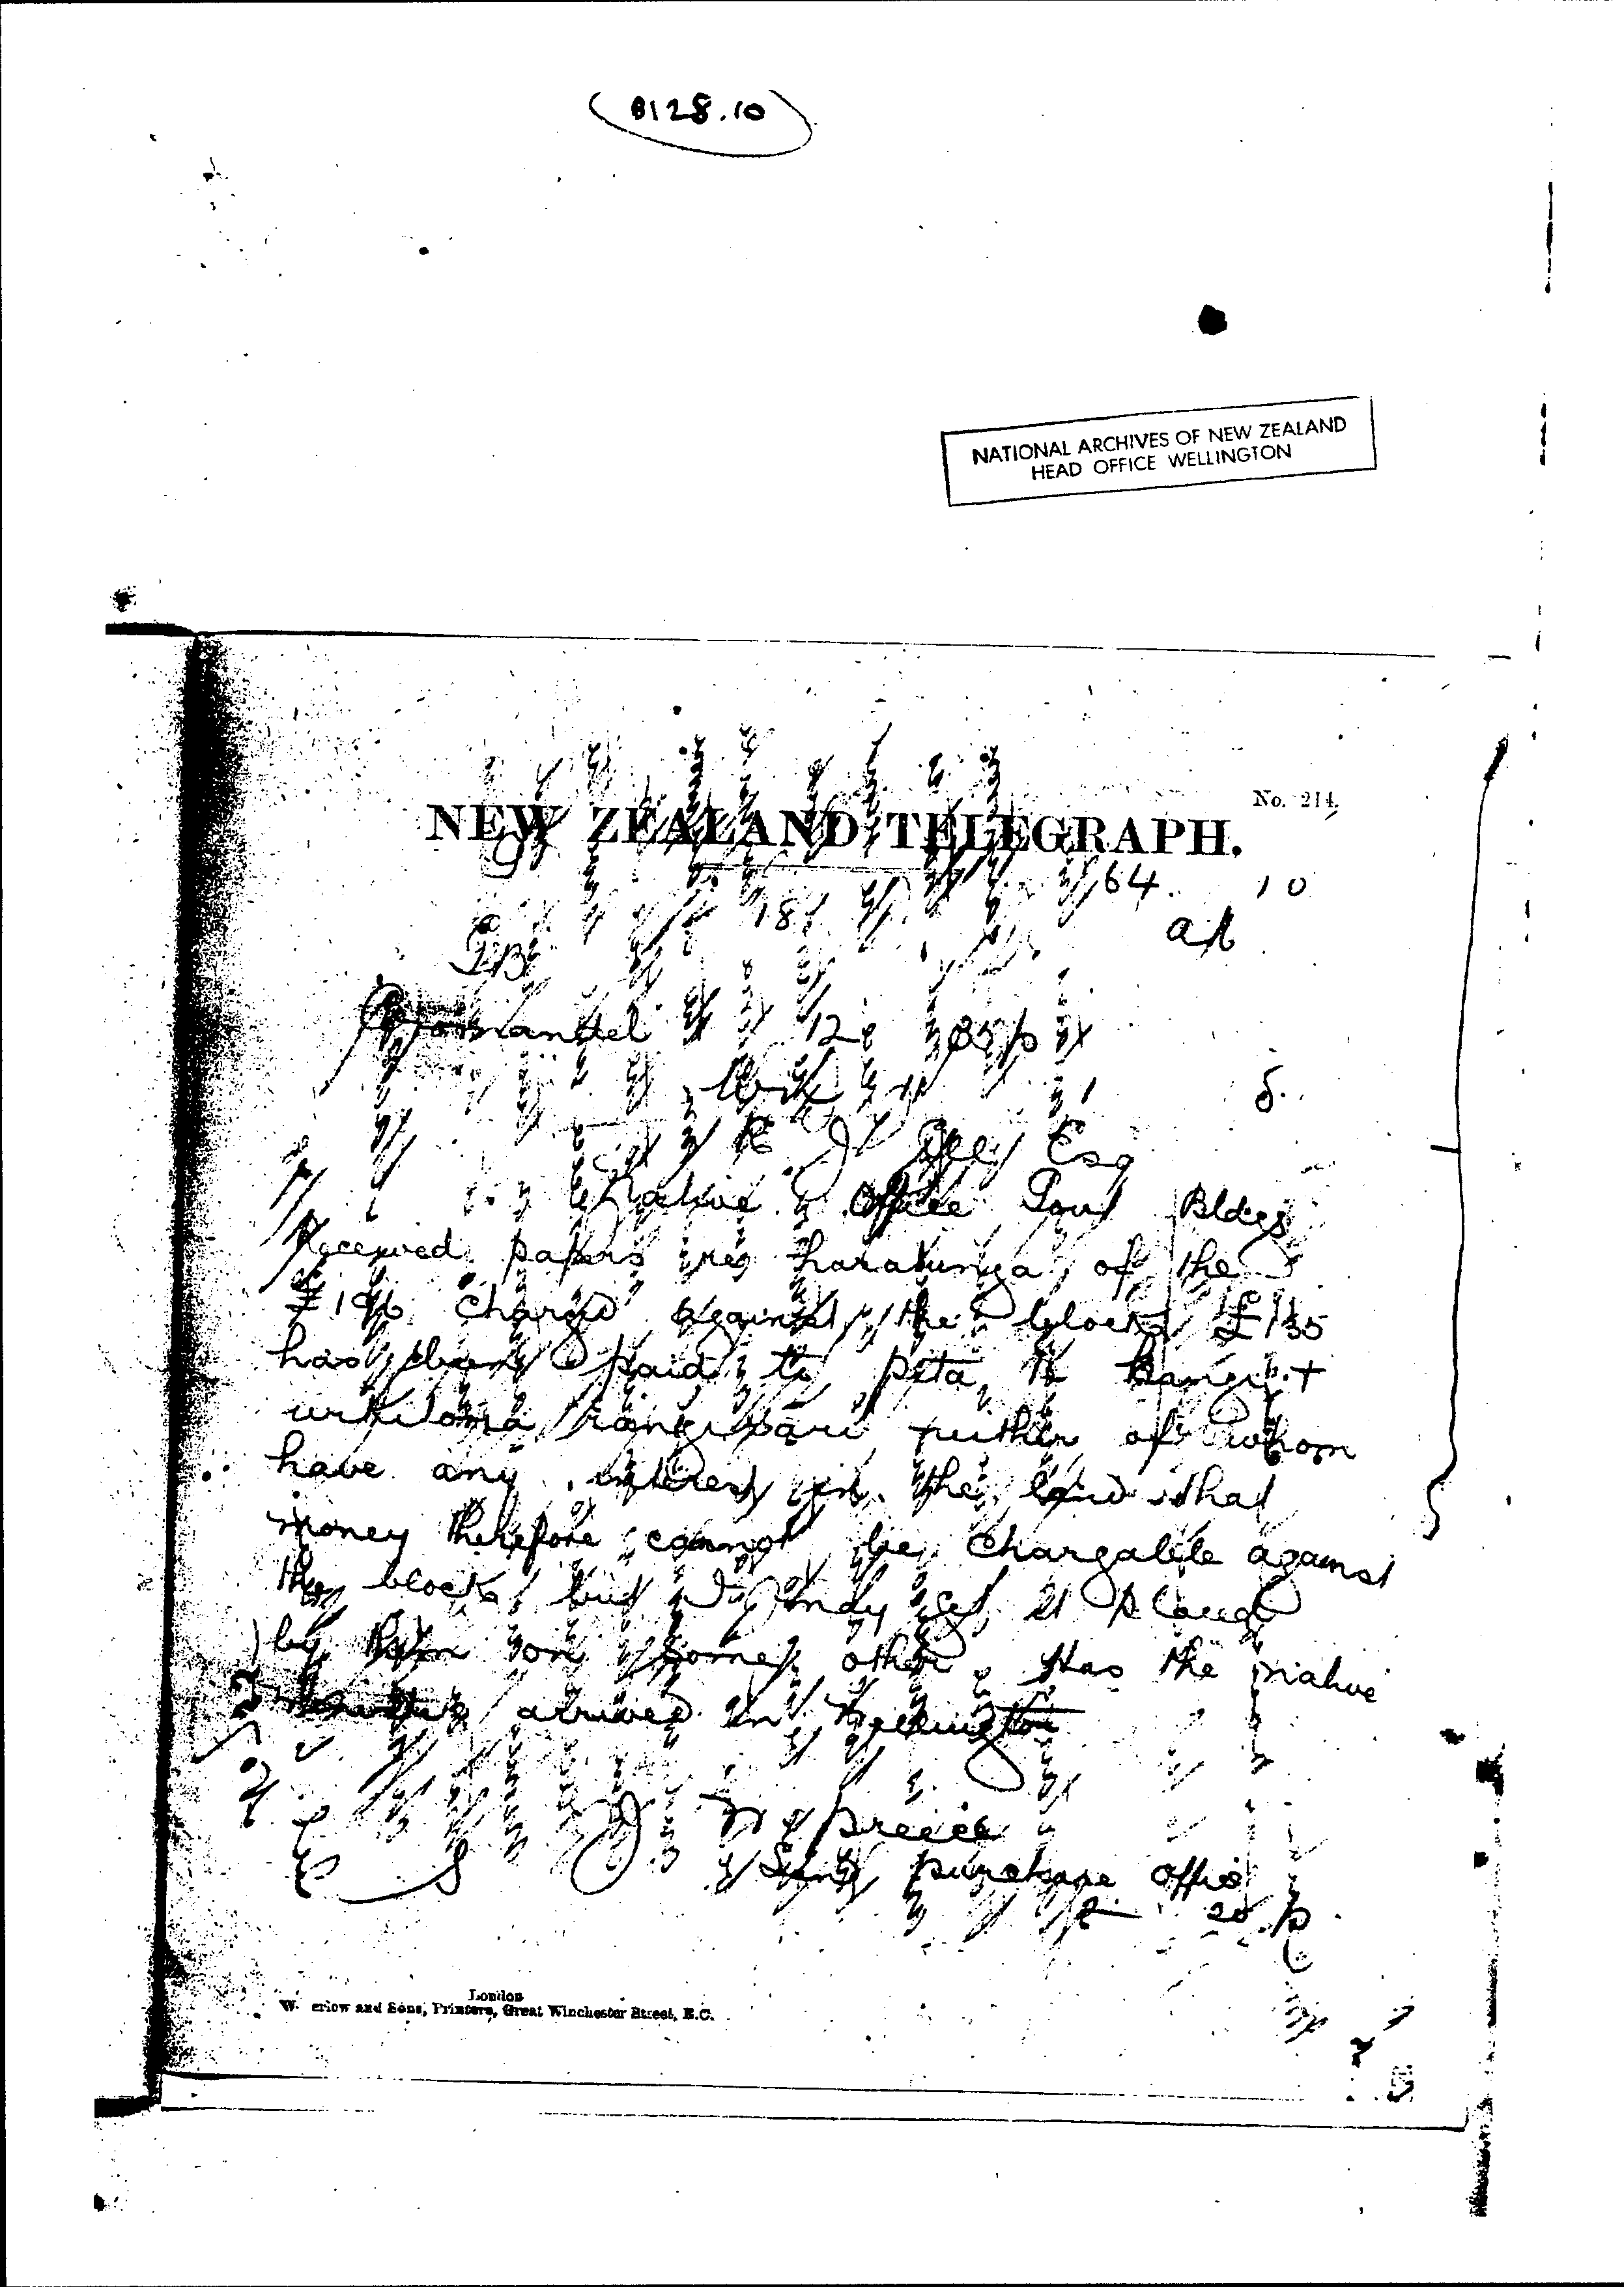 B128.10
NATIONAL ARCHIVES OF NEW ZEALAND
HEAD OFFICE WELLINGTON
No. 214,
NEW ZEALAND TELEGRAPH.
64. 10
187
Coromandel 12 35 p
R J Gill Esq
Native Office Govt Bldgs
Received papers re haratunga of the
£196 charged against the block £135
has been paid to pita te +
neither of whom
have any interest in the land that
money therefore cannot be chargable against
the block but I may get it
by them on some other Has the native
arrived in Wellington
preece
purchase office
2 20 p
London
W erlow and Sons, Printers, Great Winchester Street, E.C.